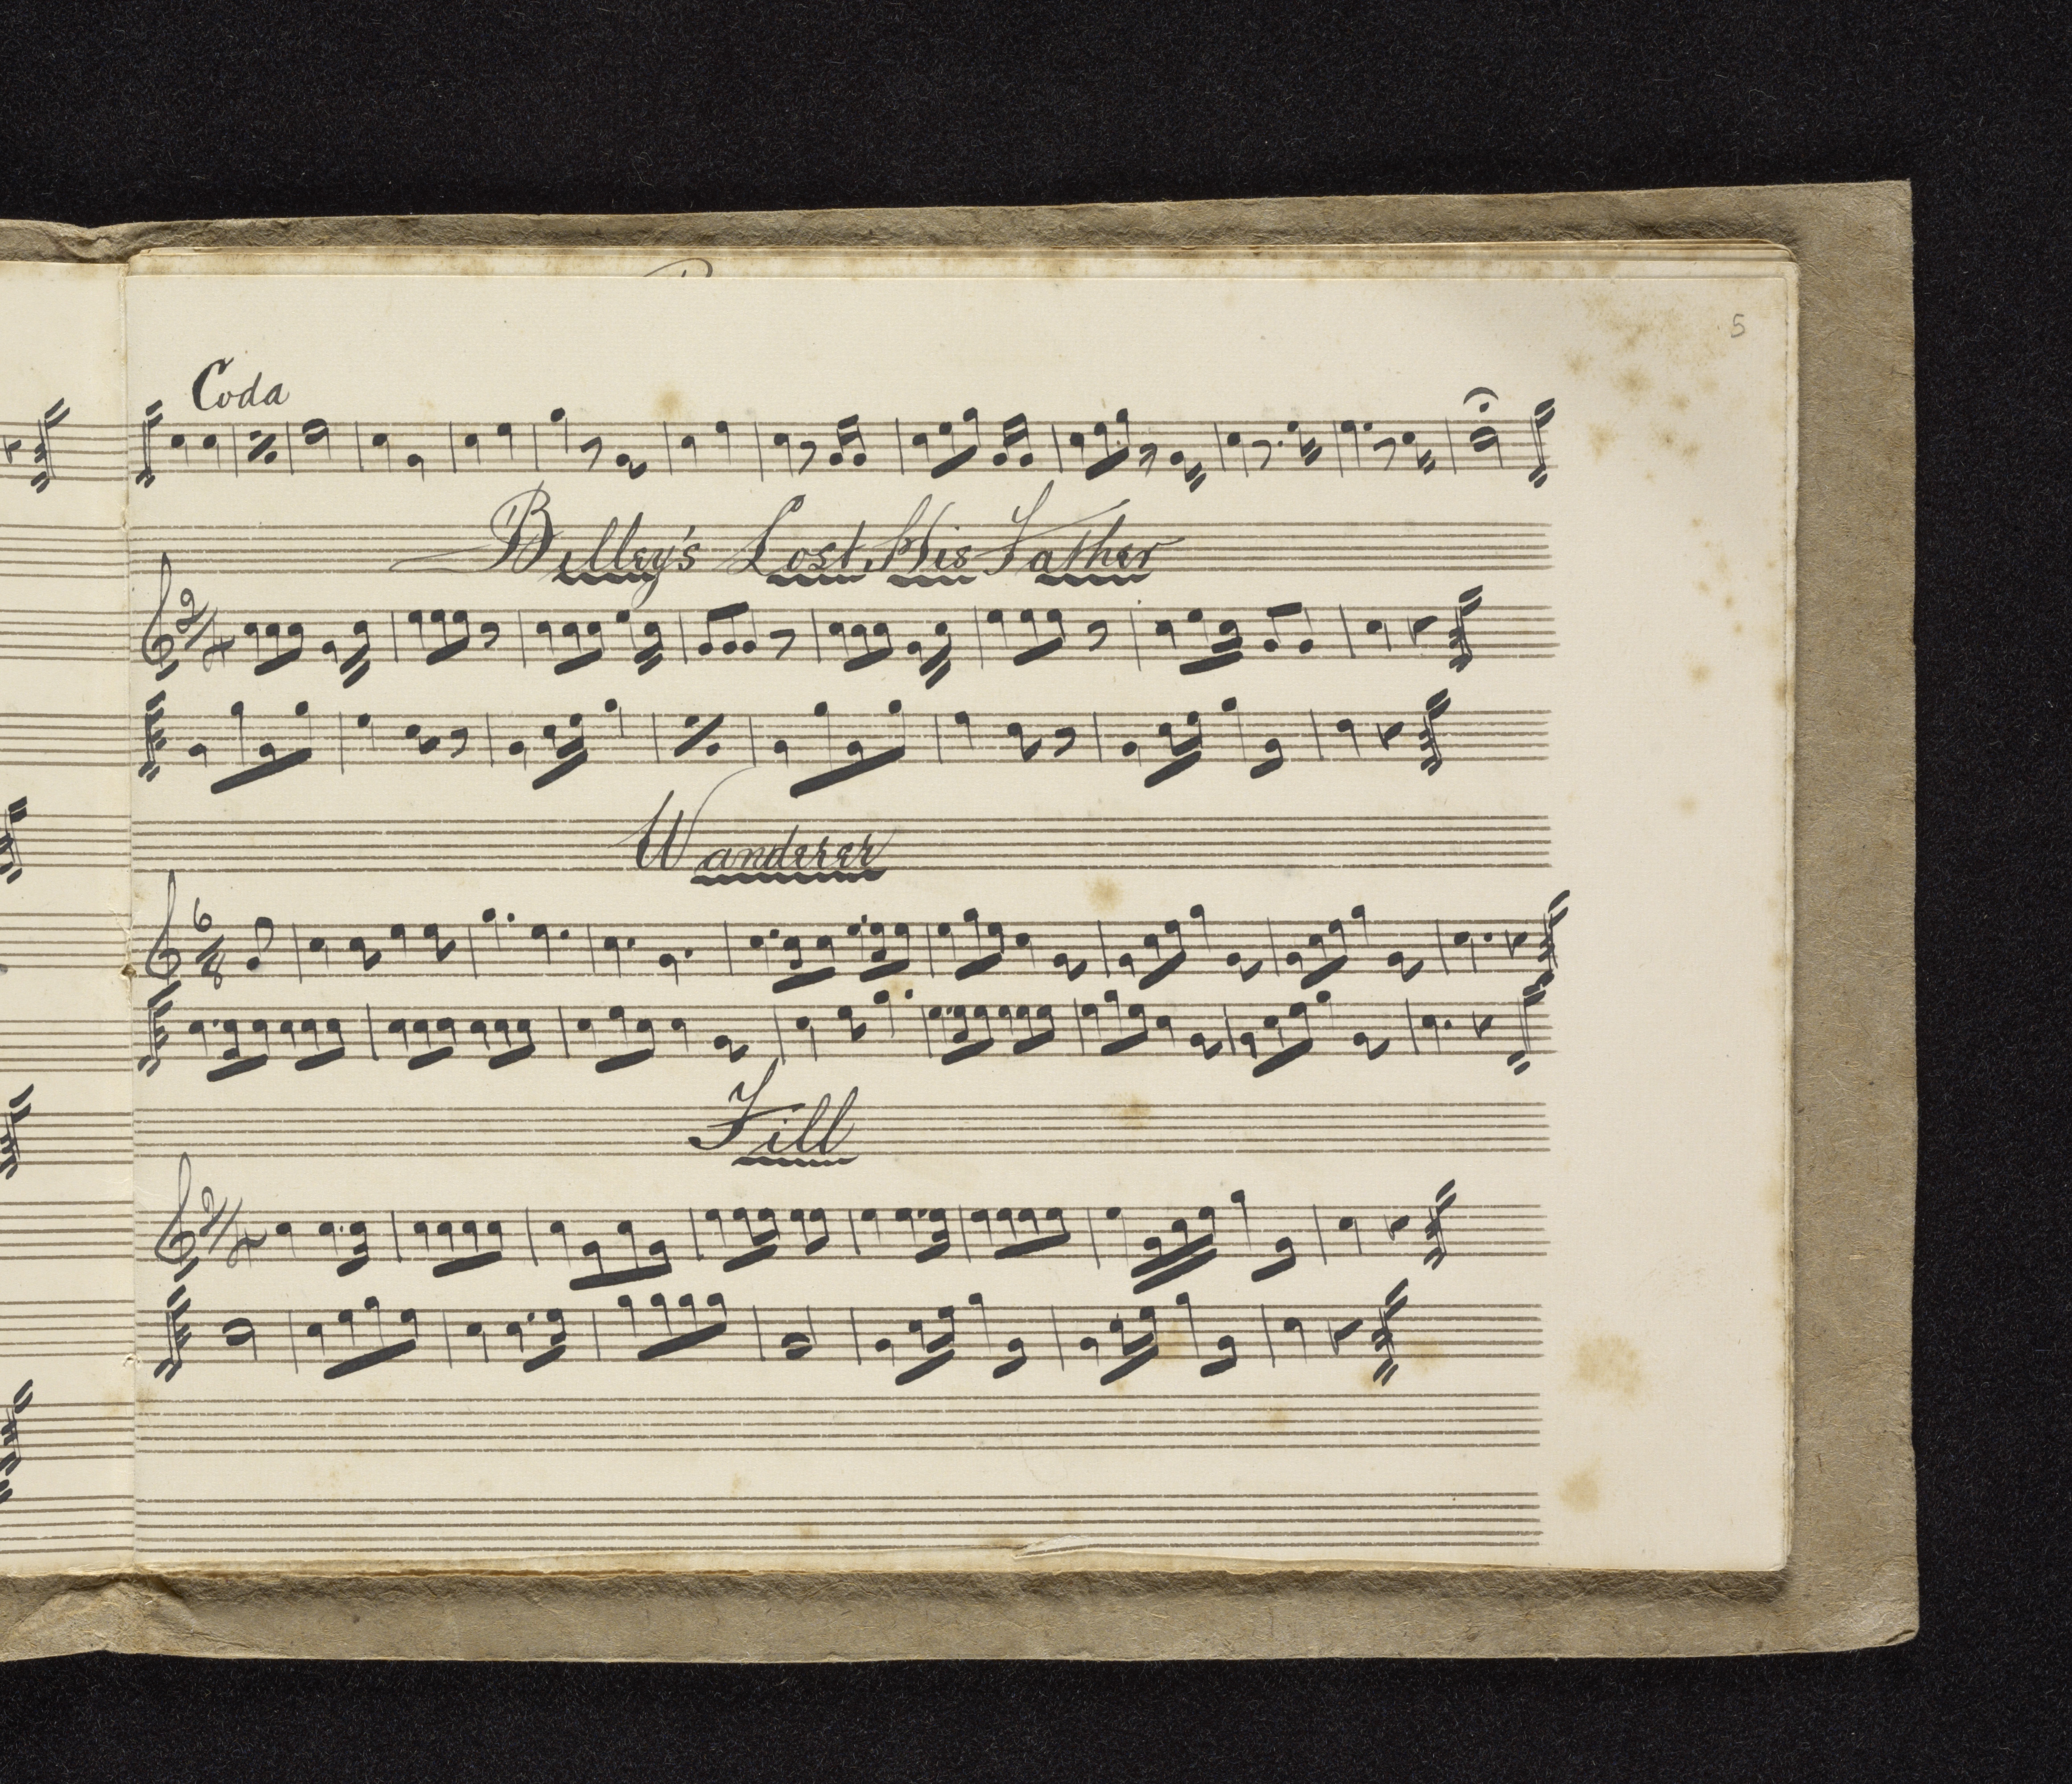 5
Coda
Billey's Lost His Father
2/4
Wanderer
6/8
Fill
2/4